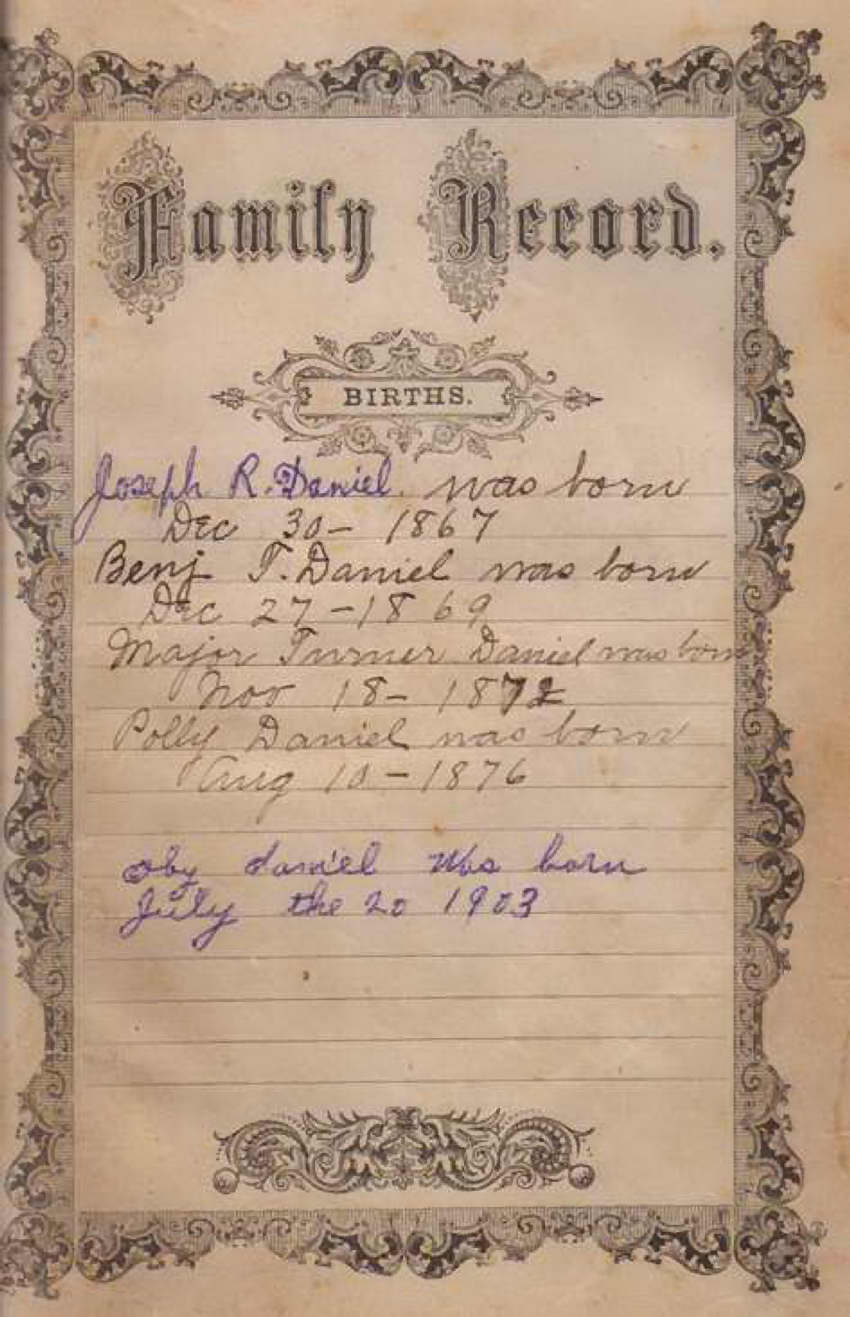 Family Record.
BIRTHS.
Joseph R. Daniel. was born
Dec 30 - 1867
Benj T. Daniel was born
Dec 27 - 1869
Major Turner Daniel was born
Nov 18 - 1872
Polly Daniel was born
Aug 10 - 1876
oby daniel was born
July the 20 1903